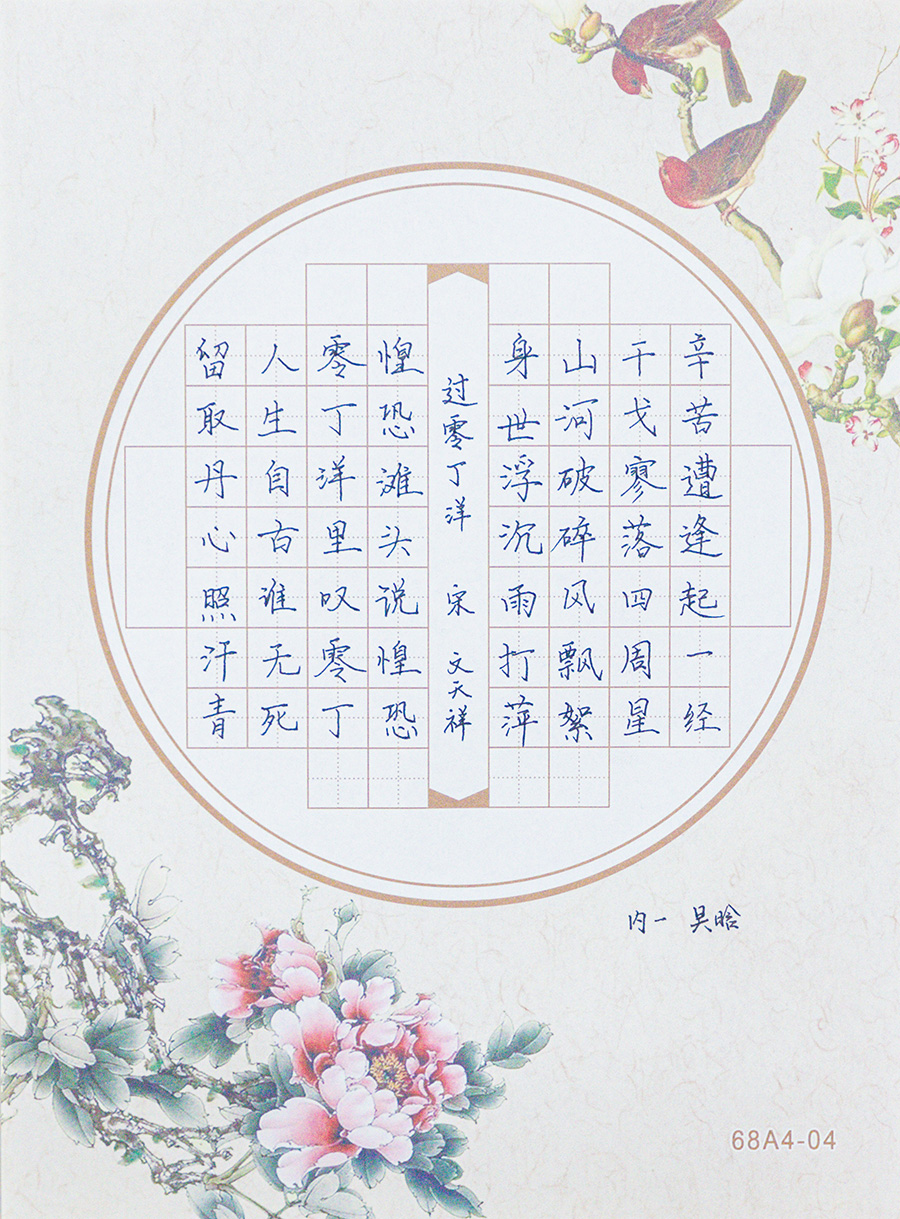 辛苦遭逢起一经
干戈寥落四周星
山河破碎风飘絮
身世浮沉雨打萍
过零丁洋 宋 文天祥
惶恐滩头说惶恐
零丁洋里叹零丁
人生自古谁无死
留取丹心照汗青
内一 吴晗
68A4-04